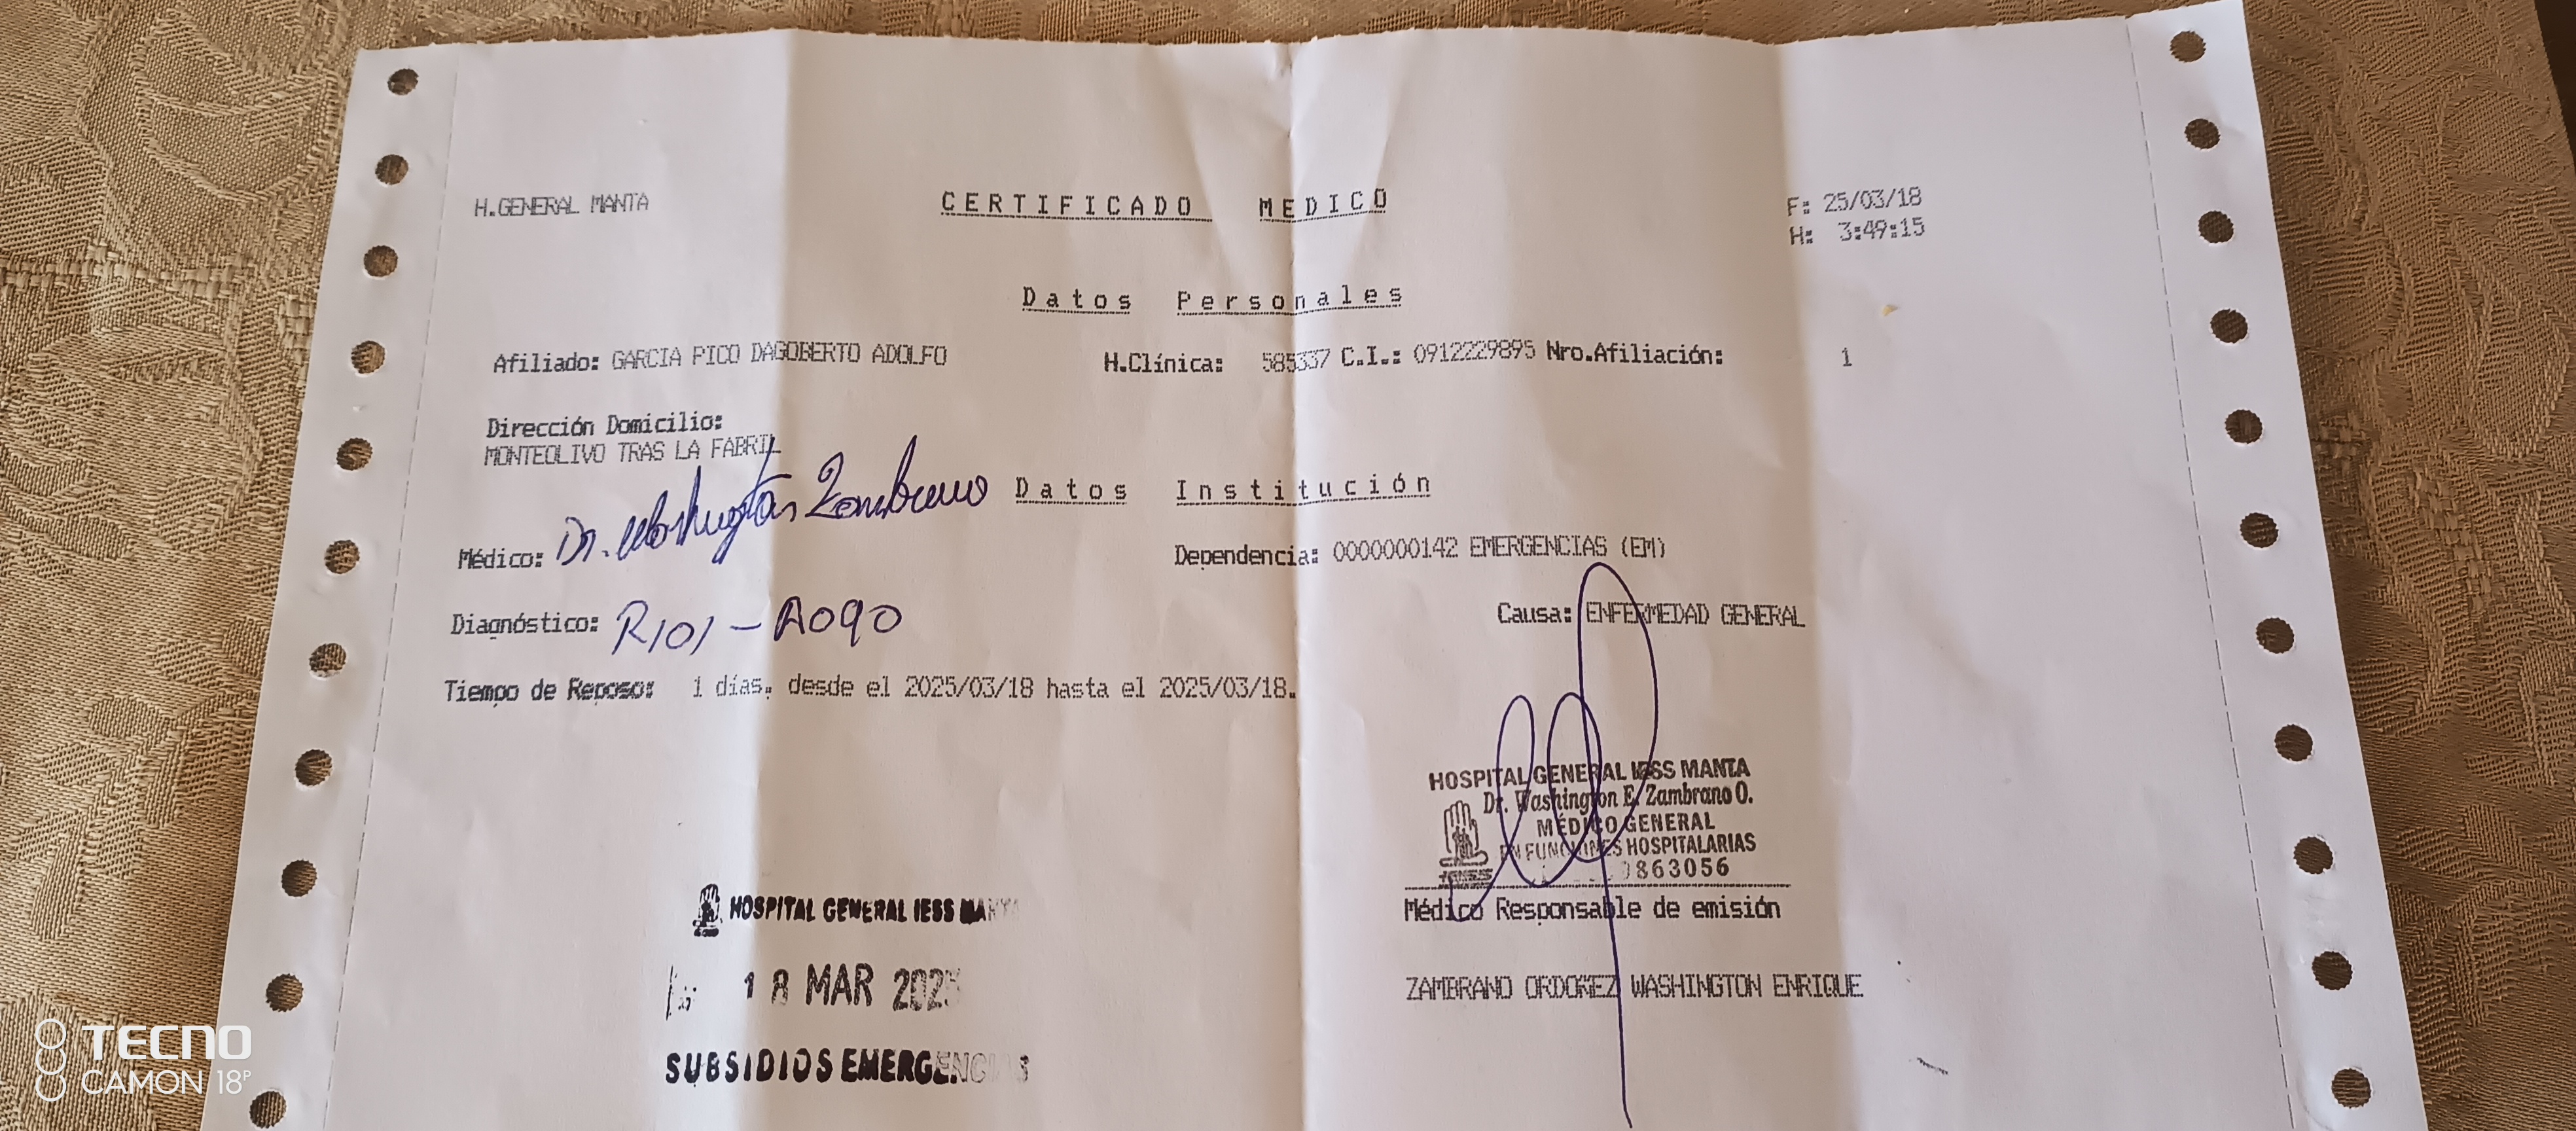 H.GENERAL MANTA
CERTIFICADO MEDICO
F: 25/03/18
H: 3:49:15
Datos Personales
Afiliado: GARCIA PICO DAGOBERTO ADOLFO H.Clínica: 585337 C.I.: 0912229895 Nro.Afiliación: 1
Dirección Domicilio:
MONTEOLIVO TRAS LA FABRIL
Datos Institución
Médico: Dr. Washington Zambrano Dependencia: 0000000142 EMERGENCIAS (EM)
Diagnóstico: R101 - A090 Causa: ENFERMEDAD GENERAL
Tiempo de Reposo: 1 días, desde el 2025/03/18 hasta el 2025/03/18.
HOSPITAL GENERAL IESS MANTA
Dr. Washington E. Zambrano O.
MÉDICO GENERAL
EN FUNCIONES HOSPITALARIAS
863056
IESS
Médico Responsable de emisión
ZAMBRANO ORDOÑEZ WASHINGTON ENRIQUE
HOSPITAL GENERAL IESS MANTA
18 MAR 2025
SUBSIDIOS EMERGENCIAS
TECNO
CAMON 18P